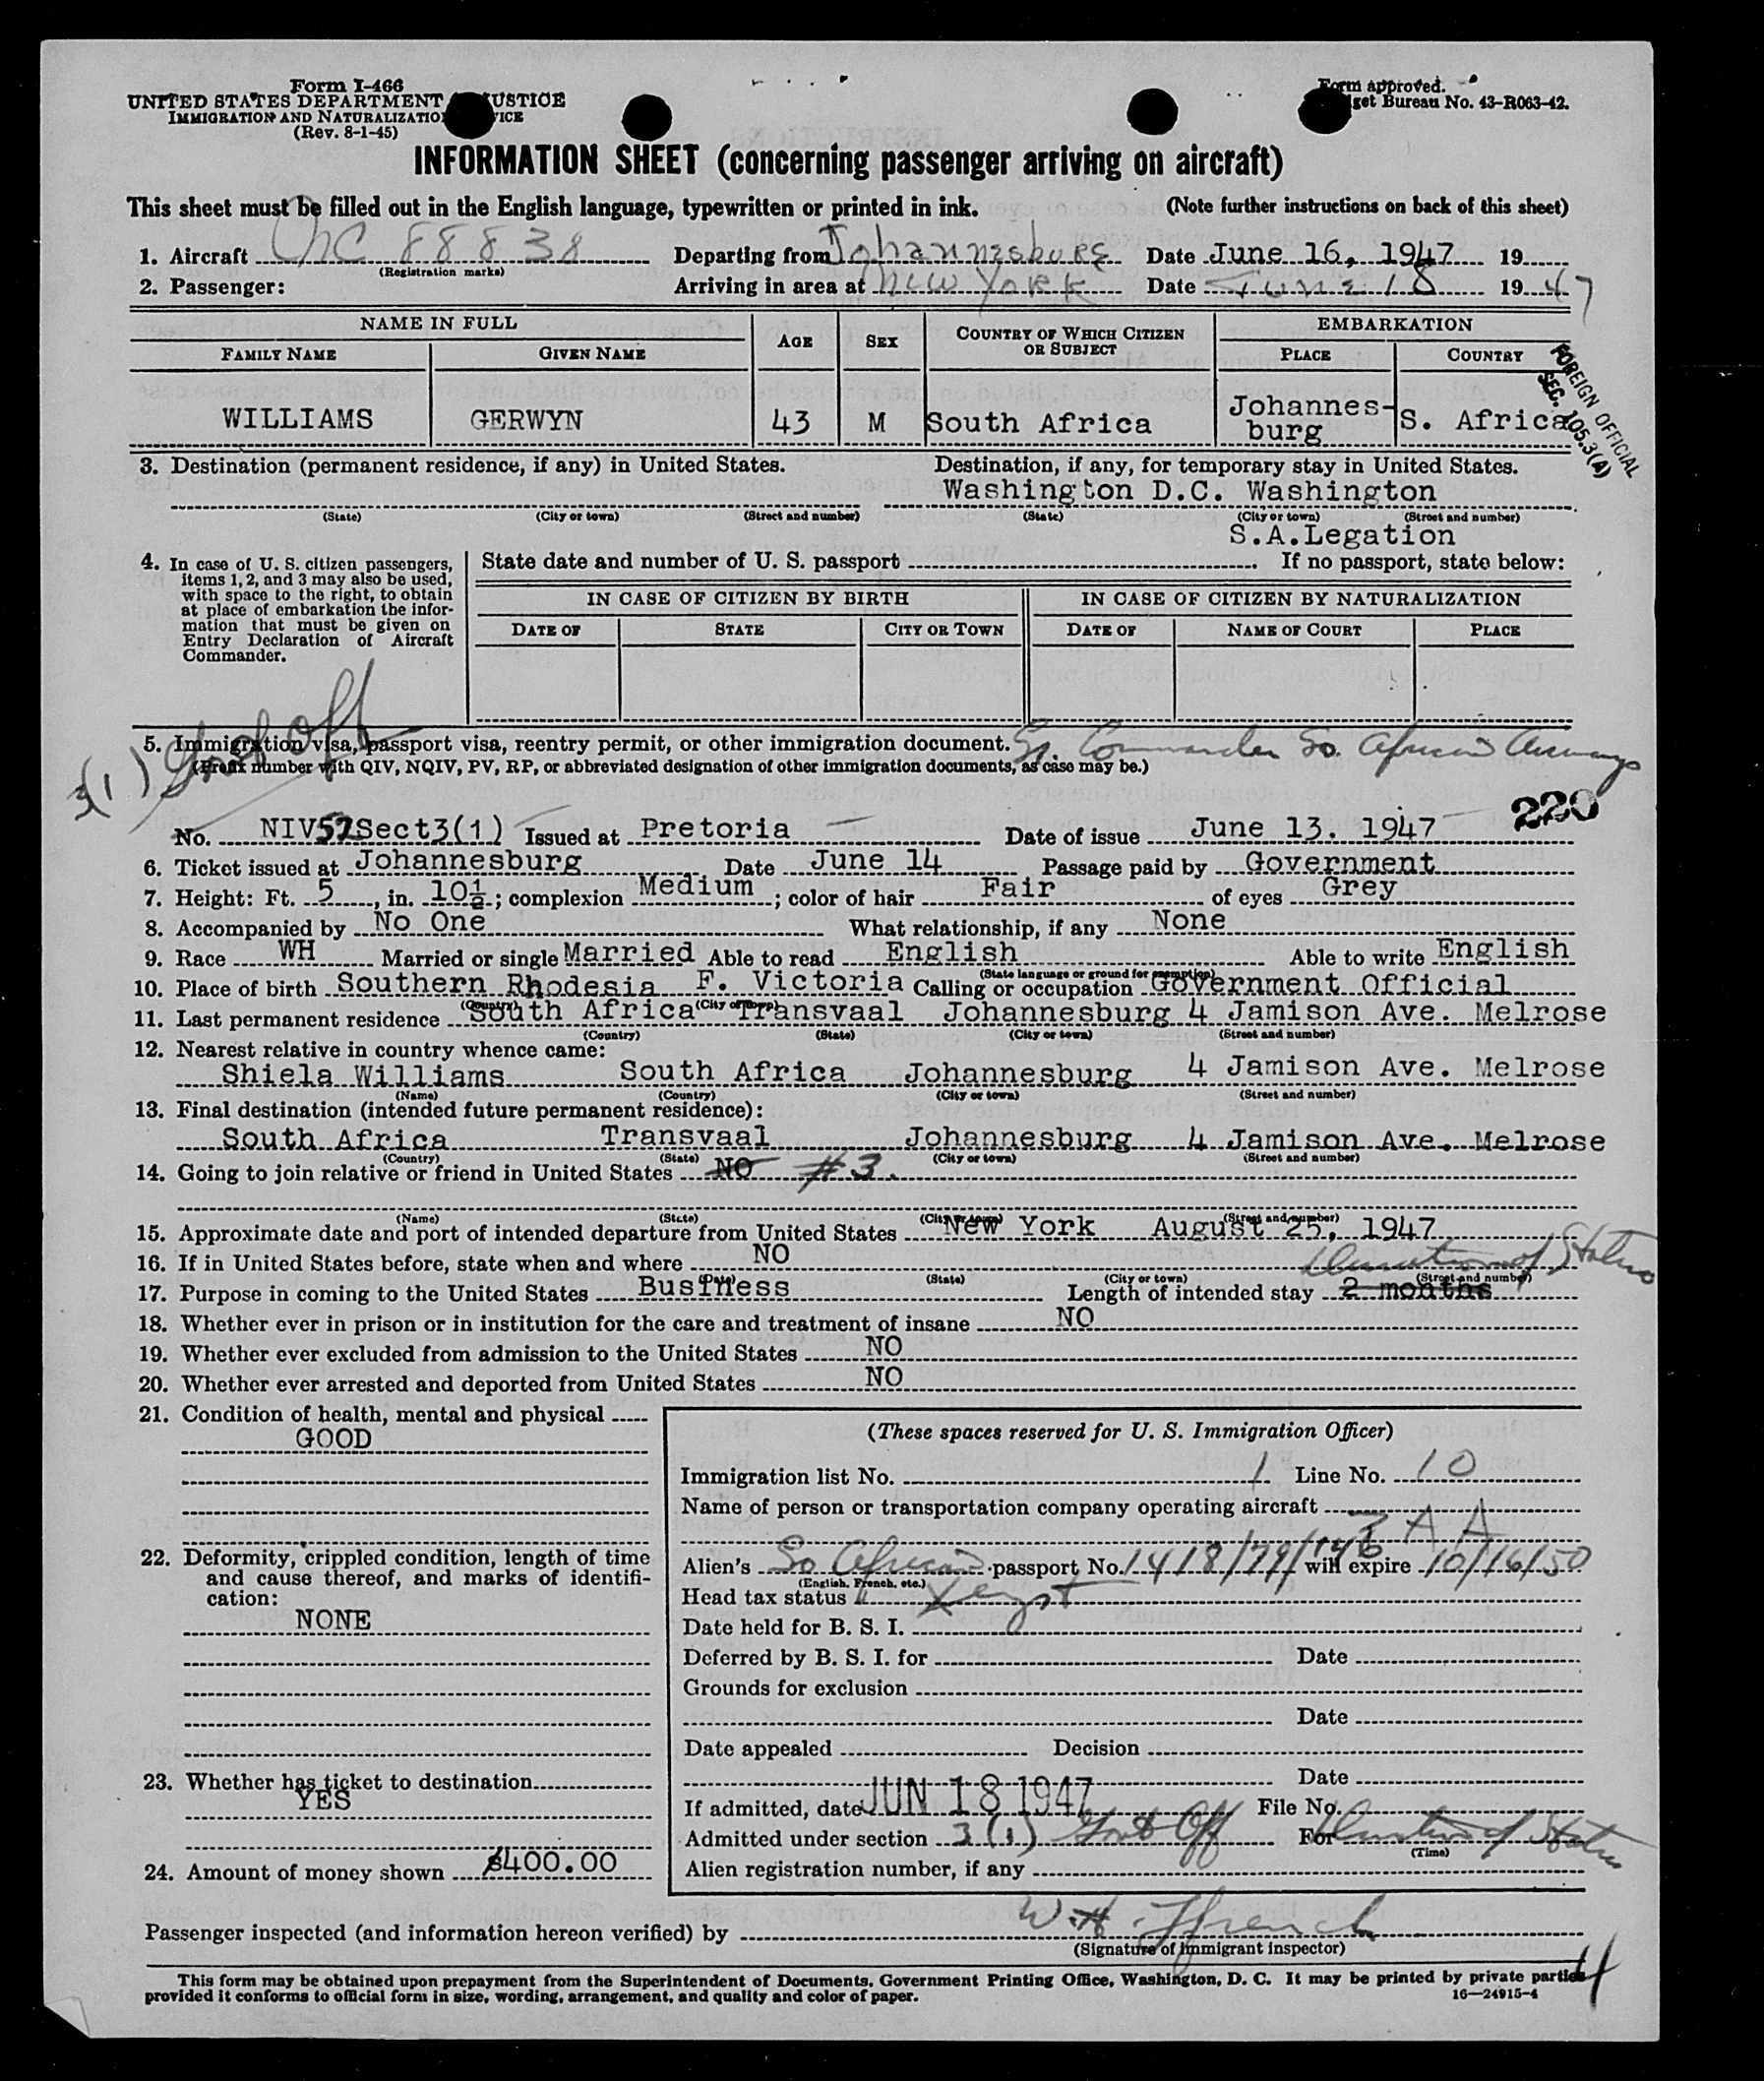 Form I-466
UNITED STATES DEPARTMENT USTICE
IMMIGRATION AND NATURALIZATIO VICE
(Rev. 8-1-45)
Form approved.
get Bureau No. 43-R063-42.
INFORMATION SHEET (concerning passenger arriving on aircraft)
This sheet must be filled out in the English language, typewritten or printed in ink. (Note further instructions on back of this sheet)
1. Aircraft NC 88838 Departing from Johannesburg Date June 16, 1947 19
(Registration marks)
2. Passenger: Arriving in area at New York Date June 18 1947
NAME IN FULL AGE SEX COUNTRY OF WHICH CITIZEN OR SUBJECT EMBARKATION
FAMILY NAME GIVEN NAME PLACE COUNTRY
WILLIAMS GERWYN 43 M South Africa Johannes-burg S. Africa
FOREIGN OFFICIAL
SEC. 105.3(A)
3. Destination (permanent residence, if any) in United States. Destination, if any, for temporary stay in United States.
Washington D.C. Washington
(State) (City or town) (Street and number) (State) (City or town) (Street and number)
S.A.Legation
4. In case of U. S. citizen passengers, items 1, 2, and 3 may also be used, with space to the right, to obtain at place of embarkation the information that must be given on Entry Declaration of Aircraft Commander.
State date and number of U. S. passport If no passport, state below:
IN CASE OF CITIZEN BY BIRTH IN CASE OF CITIZEN BY NATURALIZATION
DATE OF STATE CITY OR TOWN DATE OF NAME OF COURT PLACE
3(1) Gov of Off
5. Immigration visa, passport visa, reentry permit, or other immigration document. Commander So. African Airways
(Prefix number with QIV, NQIV, PV, RP, or abbreviated designation of other immigration documents, as case may be.)
220
No. NIV57Sect3(1) Issued at Pretoria Date of issue June 13. 1947
6. Ticket issued at Johannesburg Date June 14 Passage paid by Government
7. Height: Ft. 5, in. 10½; complexion Medium; color of hair Fair of eyes Grey
8. Accompanied by No One What relationship, if any None
9. Race WH Married or single Married Able to read English Able to write English
(State language or ground for exemption)
10. Place of birth Southern Rhodesia F. Victoria Calling or occupation Government Official
(Country) (City or town)
11. Last permanent residence South Africa Transvaal Johannesburg 4 Jamison Ave. Melrose
(Country) (State) (City or town) (Street and number)
12. Nearest relative in country whence came:
Shiela Williams South Africa Johannesburg 4 Jamison Ave. Melrose
(Name) (Country) (City or town) (Street and number)
13. Final destination (intended future permanent residence):
South Africa Transvaal Johannesburg 4 Jamison Ave. Melrose
(Country) (State) (City or town) (Street and number)
14. Going to join relative or friend in United States NO #3.
(Name) (State) (City or town) (Street and number)
15. Approximate date and port of intended departure from United States New York August 25, 1947
16. If in United States before, state when and where NO
(Date) (State) (City or town) (Street and number)
Duration of Status
17. Purpose in coming to the United States Business Length of intended stay 2 months
18. Whether ever in prison or in institution for the care and treatment of insane NO
19. Whether ever excluded from admission to the United States NO
20. Whether ever arrested and deported from United States NO
21. Condition of health, mental and physical
GOOD
22. Deformity, crippled condition, length of time and cause thereof, and marks of identification:
NONE
23. Whether has ticket to destination
YES
24. Amount of money shown $400.00
(These spaces reserved for U. S. Immigration Officer)
Immigration list No. 1 Line No. 10
Name of person or transportation company operating aircraft
P A A
Alien's So African passport No. 1418/79/146 will expire 10/16/50
(English, French, etc.)
Head tax status Xempt
Date held for B. S. I.
Deferred by B. S. I. for Date
Grounds for exclusion
Date
Date appealed Decision
Date
If admitted, date JUN 18 1947 File No.
Admitted under section 3(1) Govt Off For Duration of Status
(Time)
Alien registration number, if any
Passenger inspected (and information hereon verified) by W.H. Ffrench
(Signature of immigrant inspector)
4
This form may be obtained upon prepayment from the Superintendent of Documents, Government Printing Office, Washington, D. C. It may be printed by private parties
provided it conforms to official form in size, wording, arrangement, and quality and color of paper. 16—24915-4